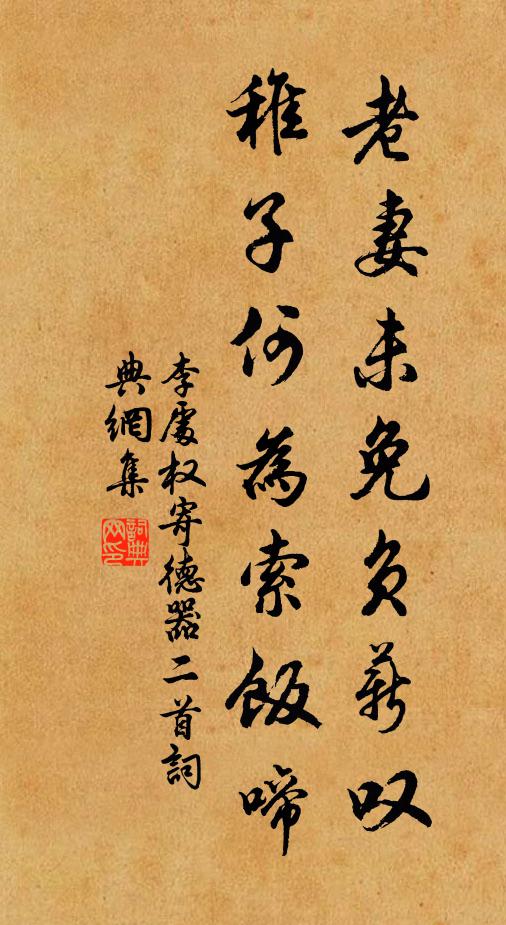 老妻未免負薪叹
稚子何為索飯啼
李處权寄德器二首詞
典網集
詞典网印